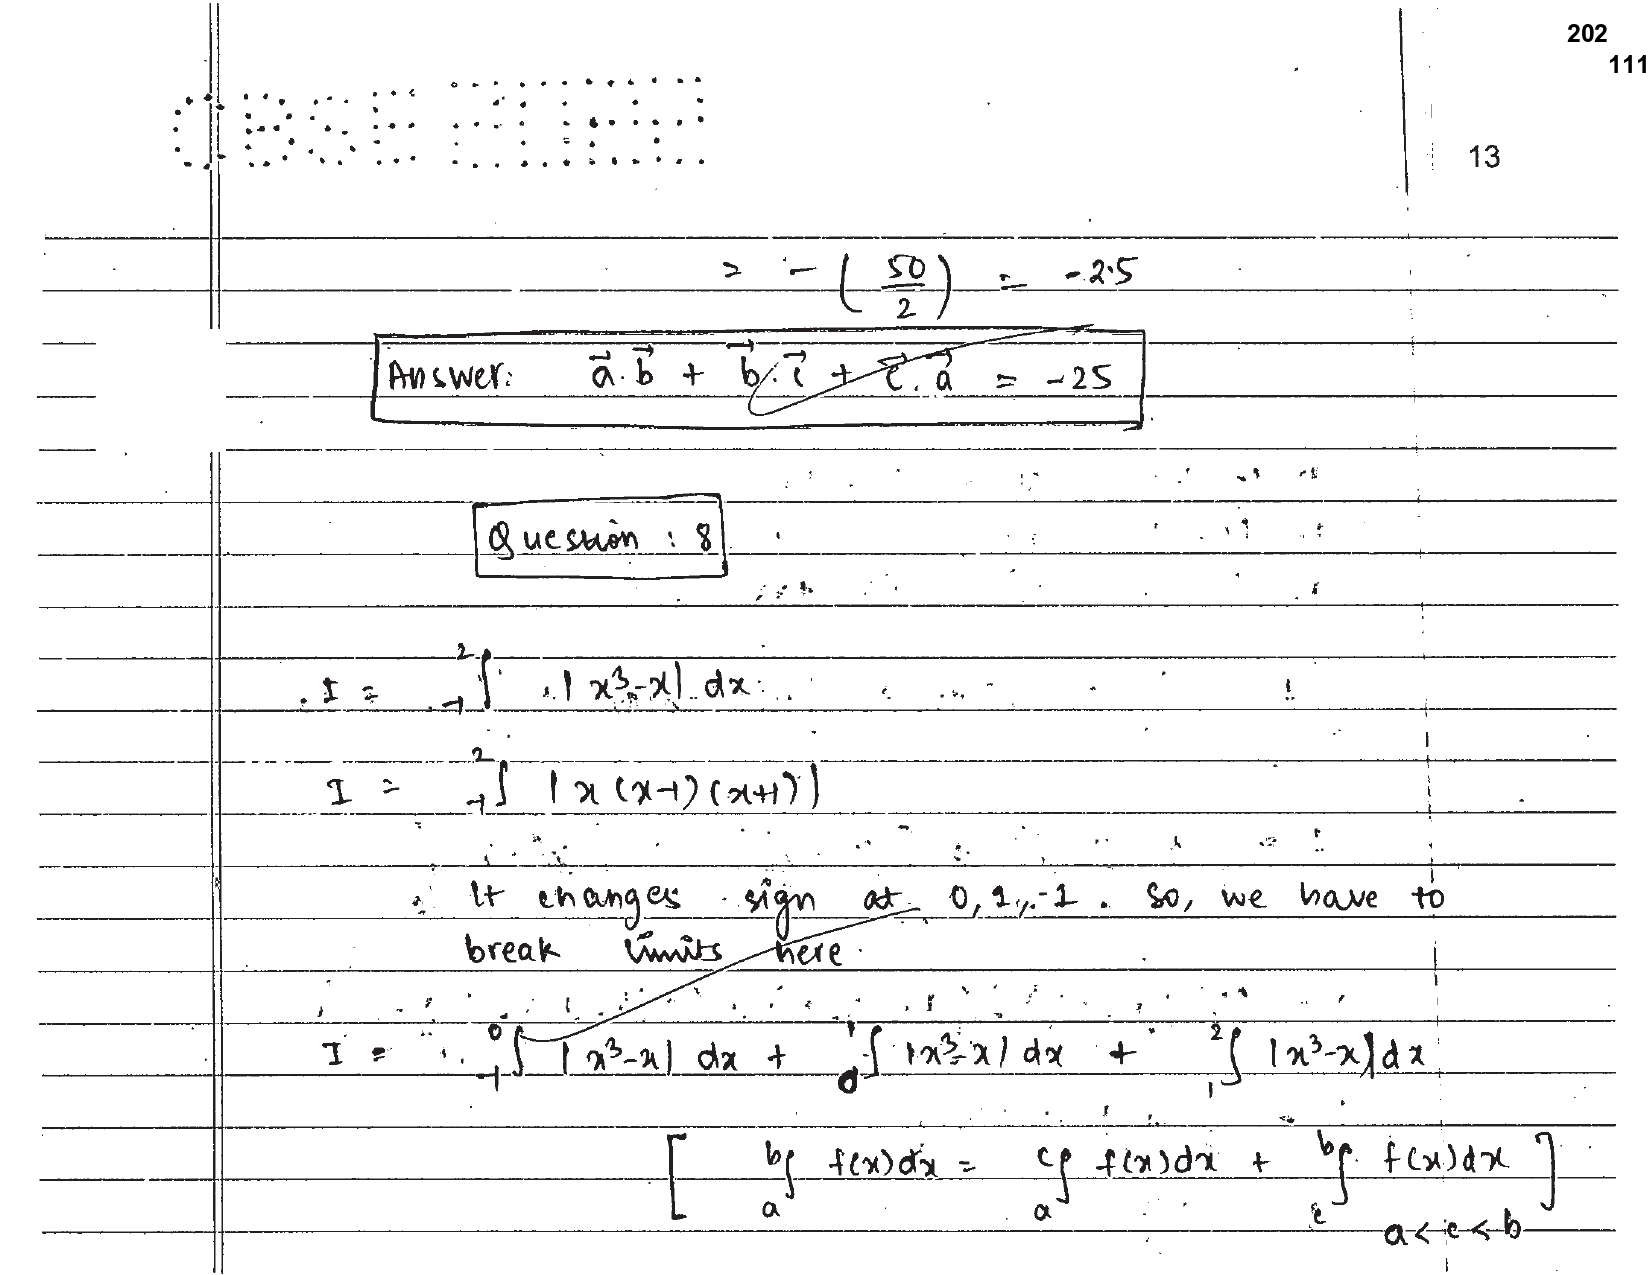 202
111
CBSE
13
= - ( 50/2 ) = -2.5
Answer: a⃗.b⃗ + b⃗.c⃗ + c⃗.a⃗ = -25
Question : 8
I = -1∫2 |x³-x| dx
I = -1∫2 |x(x-1)(x+1)|
It changes sign at 0, 1, -1. So, we have to
break limits here.
I = -1∫0 |x³-x| dx + 0∫1 |x³-x| dx + 1∫2 |x³-x| dx
[ a∫b f(x)dx = a∫c f(x)dx + c∫b f(x)dx ]
a < c < b